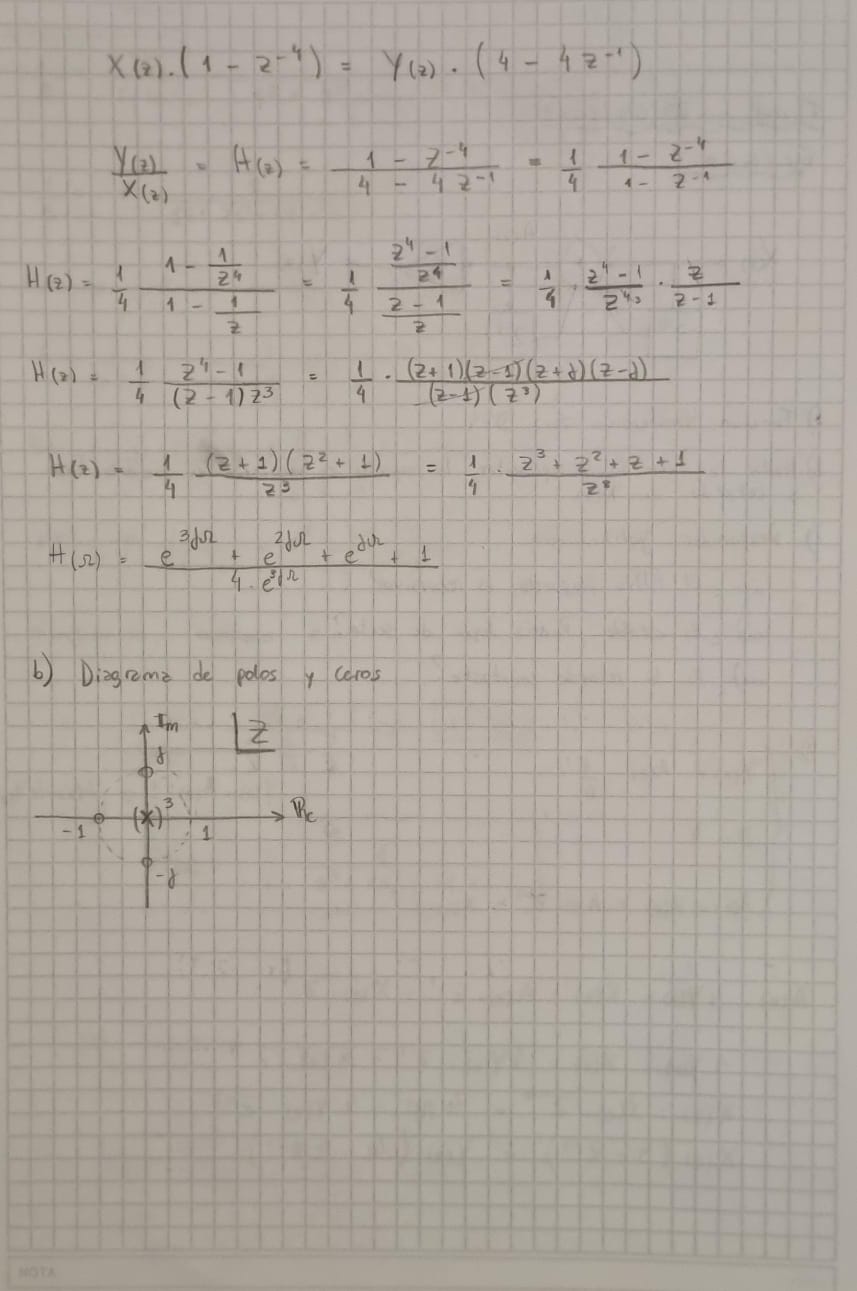 X(z).(1 - z⁻⁴) = Y(z) . (4 - 4z⁻¹)
Y(z)/X(z) = H(z) = (1 - z⁻⁴)/(4 - 4z⁻¹) = 1/4 (1 - z⁻⁴)/(1 - z⁻¹)
H(z) = 1/4 (1 - 1/z⁴)/(1 - 1/z) = 1/4 ((z⁴ - 1)/z⁴)/((z - 1)/z) = 1/4 . (z⁴ - 1)/z⁴ . z/(z - 1)
H(z) = 1/4 (z⁴ - 1)/((z - 1)z³) = 1/4 . ((z+1)(z-1)(z+j)(z-j))/((z-1)(z³))
H(z) = 1/4 ((z+1)(z²+1))/z³ = 1/4 . (z³ + z² + z + 1)/z³
H(Ω) = (e^(3jΩ) + e^(2jΩ) + e^(jΩ) + 1)/(4 . e^(3jΩ))
b) Diagrama de polos y ceros
Im
z
j
(x)³
Re
-1
1
-j
NOTA